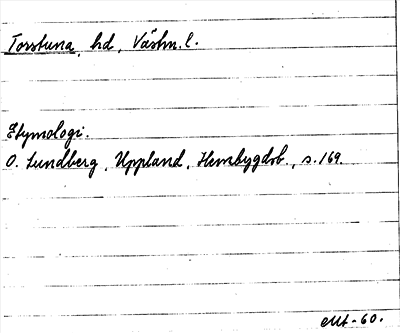 Torstuna, hd, Västm. l.
Etymologi.
O. Lundberg, Uppland, Hembygdsb., s. 169.
-60.